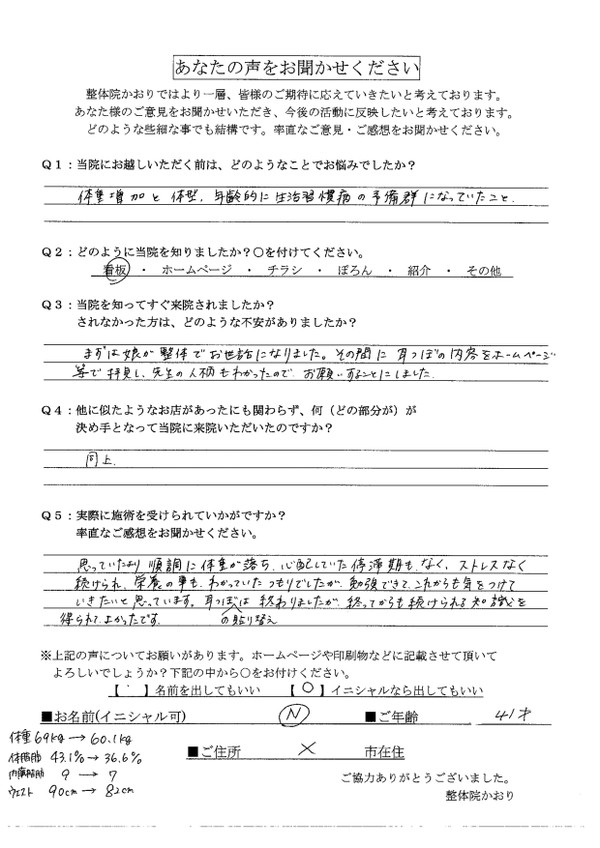 あなたの声をお聞かせください
整体院かおりではより一層、皆様のご期待に応えていきたいと考えております。
あなた様のご意見をお聞かせいただき、今後の活動に反映したいと考えております。
どのような些細な事でも結構です。率直なご意見・ご感想をお聞かせください。
Q1：当院にお越しいただく前は、どのようなことでお悩みでしたか？
体重増加と体型，年齢的に生活習慣病の予備群になっていたこと．
Q2：どのように当院を知りましたか？〇を付けてください。
看板 ・ ホームページ ・ チラシ ・ ぽろん ・ 紹介 ・ その他
Q3：当院を知ってすぐ来院されましたか？
されなかった方は、どのような不安がありましたか？
まずは娘が整体でお世話になりました。その間に耳つぼの内容をホームページ
等で拝見し、先生の人柄もわかったので、お願いすることにしました．
Q4：他に似たようなお店があったにも関わらず、何（どの部分が）が
決め手となって当院に来院いただいたのですか？
同上．
Q5：実際に施術を受けられていかがですか？
率直なご感想をお聞かせください。
思っていたより順調に体重が落ち、心配していた停滞期もなく、ストレスなく
続けられ、栄養の事も、わかっていたつもりでしたが、勉強できて、これからも気をつけて
いきたいと思っています。耳つぼは終わりましたが、終ってからも続けられる知識を
得られてよかったです。 の貼り替え
※上記の声についてお願いがあります。ホームページや印刷物などに記載させて頂いて
よろしいでしょうか？下記の中から〇をお付けください。
【 】名前を出してもいい 【〇】イニシャルなら出してもいい
■お名前(イニシャル可) N ■ご年齢 41才
体重 69kg → 60.1kg
■ご住所 × 市在住
体脂肪 43.1% → 36.6%
内臓脂肪 9 → 7
ウエスト 90cm → 82cm
ご協力ありがとうございました。
整体院かおり